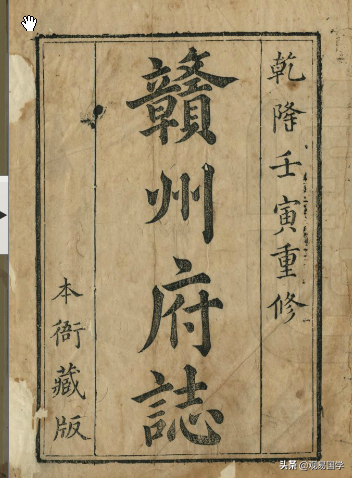 乾隆壬寅重修
贛州府誌
本衙藏版
头条 @观易国学